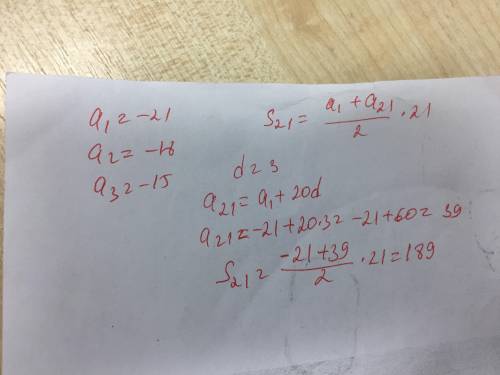 a₁ = -21
a₂ = -18
a₃ = -15
S₂₁ = (a₁ + a₂₁)/2 · 21
d = 3
a₂₁ = a₁ + 20d
a₂₁ = -21 + 20·3 = -21 + 60 = 39
S₂₁ = (-21 + 39)/2 · 21 = 189